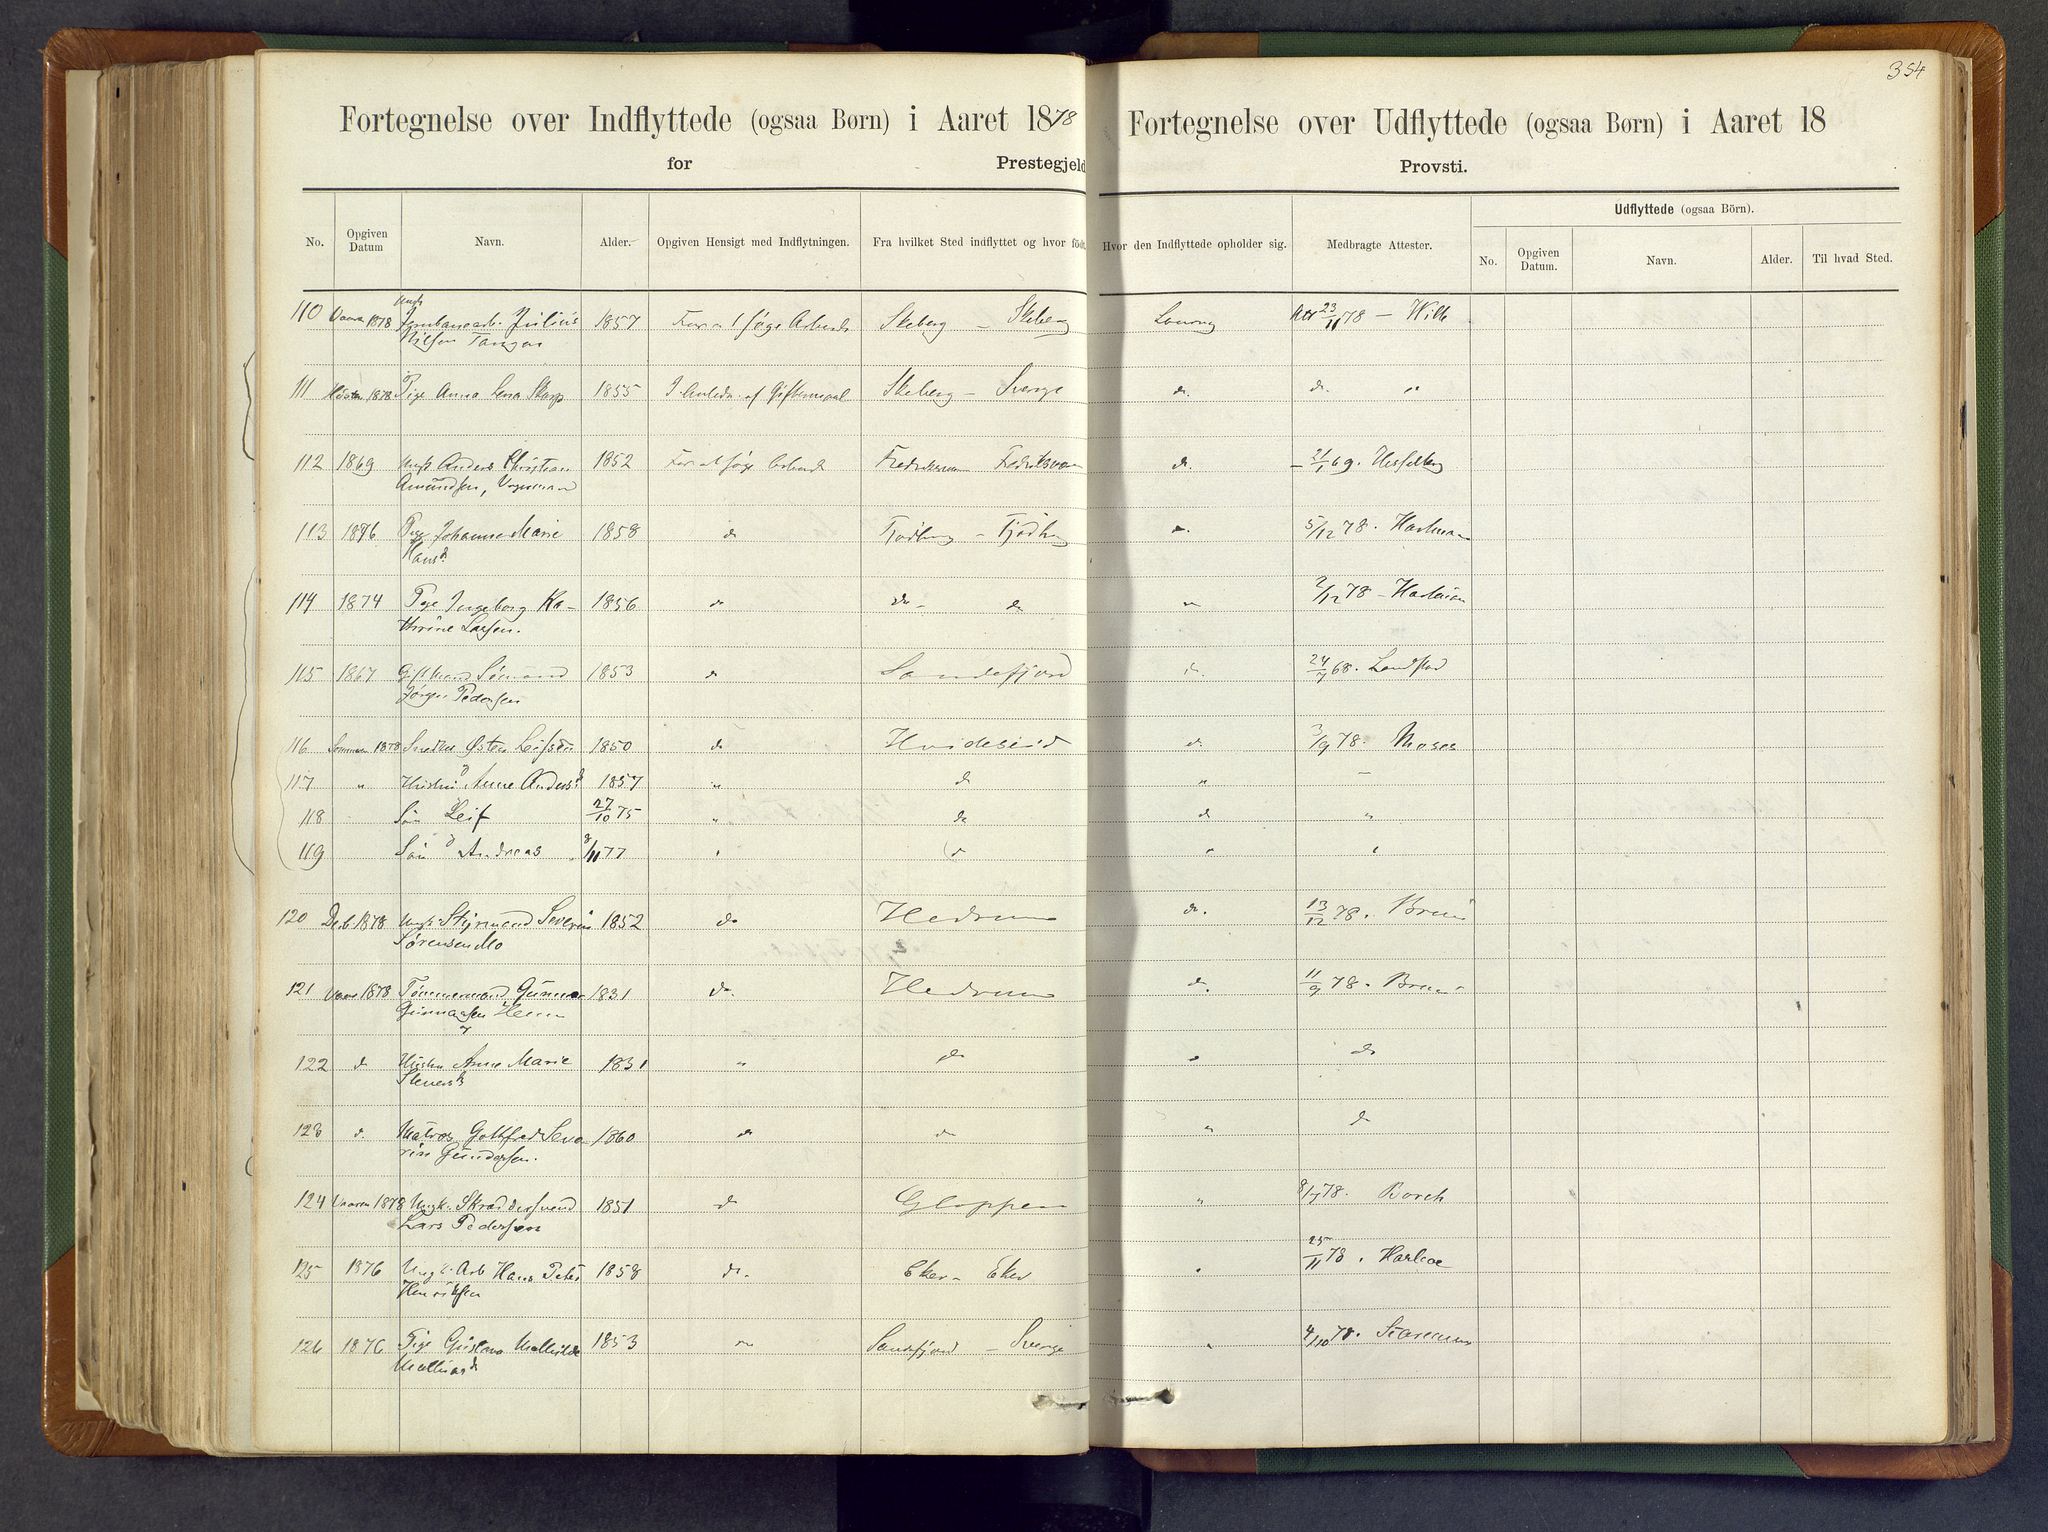 354
Fortegnelse over Indflyttede (ogsaa Børn) i Aaret 1878
Fortegnelse over Udflyttede (ogsaa Børn) i Aaret 18
for Prestegjeld
Provsti.
Udflyttede (ogsaa Börn).
No. Opgiven Datum Navn. Alder. Opgiven Hensigt med Indflytningen. Fra hvilket Sted indflyttet og hvor född. Hvor den Indflyttede opholder sig. Medbragte Attester. No. Opgiven Datum. Navn. Alder. Til hvad Sted.
110 Vaaren 1878 Julius 1857 For at søge Arbeide Skeberg – Skeberg 23/11 78 – Wille
Nilsen Tangen
111 Høsten 1878 Pige Anna Lena Skarp 1855 I Anledn. af Giftermaal Skeberg – Sverge do do "
112 1869 Ungk Anders Christian 1852 For at søge Arbeide Fredriksværn Fredriksværn do – 21/1 69. Hesselberg
Amundsen,
113 1876 Pige Johanne Marie 1858 do Tjødling – Tjødling " 5/12 78. Hartman
Hansd.
114 1874 Pige Ingeborg Ka- 1856 do do – do " 2/12 78 –
thrine Larsen.
115 1867 Gift Mand Sømand 1853 do Sandefjord d. 24/7 68. Landstad
Jørgen Pedersen
116 Sommeren 1878 Snedker Østen Leifsen 1850 do Hvideseid d. 3/9 78. Moses
117 " Hustru Anne Andersd. 1857 " do " –
118 Søn Leif 27/10 75 " do do "
119 Søn Andreas 8/11 77 " do " "
120 Decb. 1878 Ungk. Styrmand Severin 1852 do Hedrum do. 13/12 78. Bruun
Sørensen Mo
121 Vaar 1878 Tømmermand Gunnar 1831 do. Hedrum do. 11/9 78. Bruun
Gunnarsen Hem
og
122 d Hustru Anne Marie 1831 " do " do
123 d. Matros Gothfred Seve- 1860 do do " do
rin Gundersen.
124 Vaaren 1878 Ungk. Skræddersvend 1851 do Gloppen " 8/7 78. Borch
Lars Pedersen
125 1876 Ungk. Arb Hans Peter 1858 do. Eker – Eker " 25/11 78.
Henriksen
126 1876 Pige Gustava Mathilde 1853 " Sandefjord – Sverge " 4/10 78.